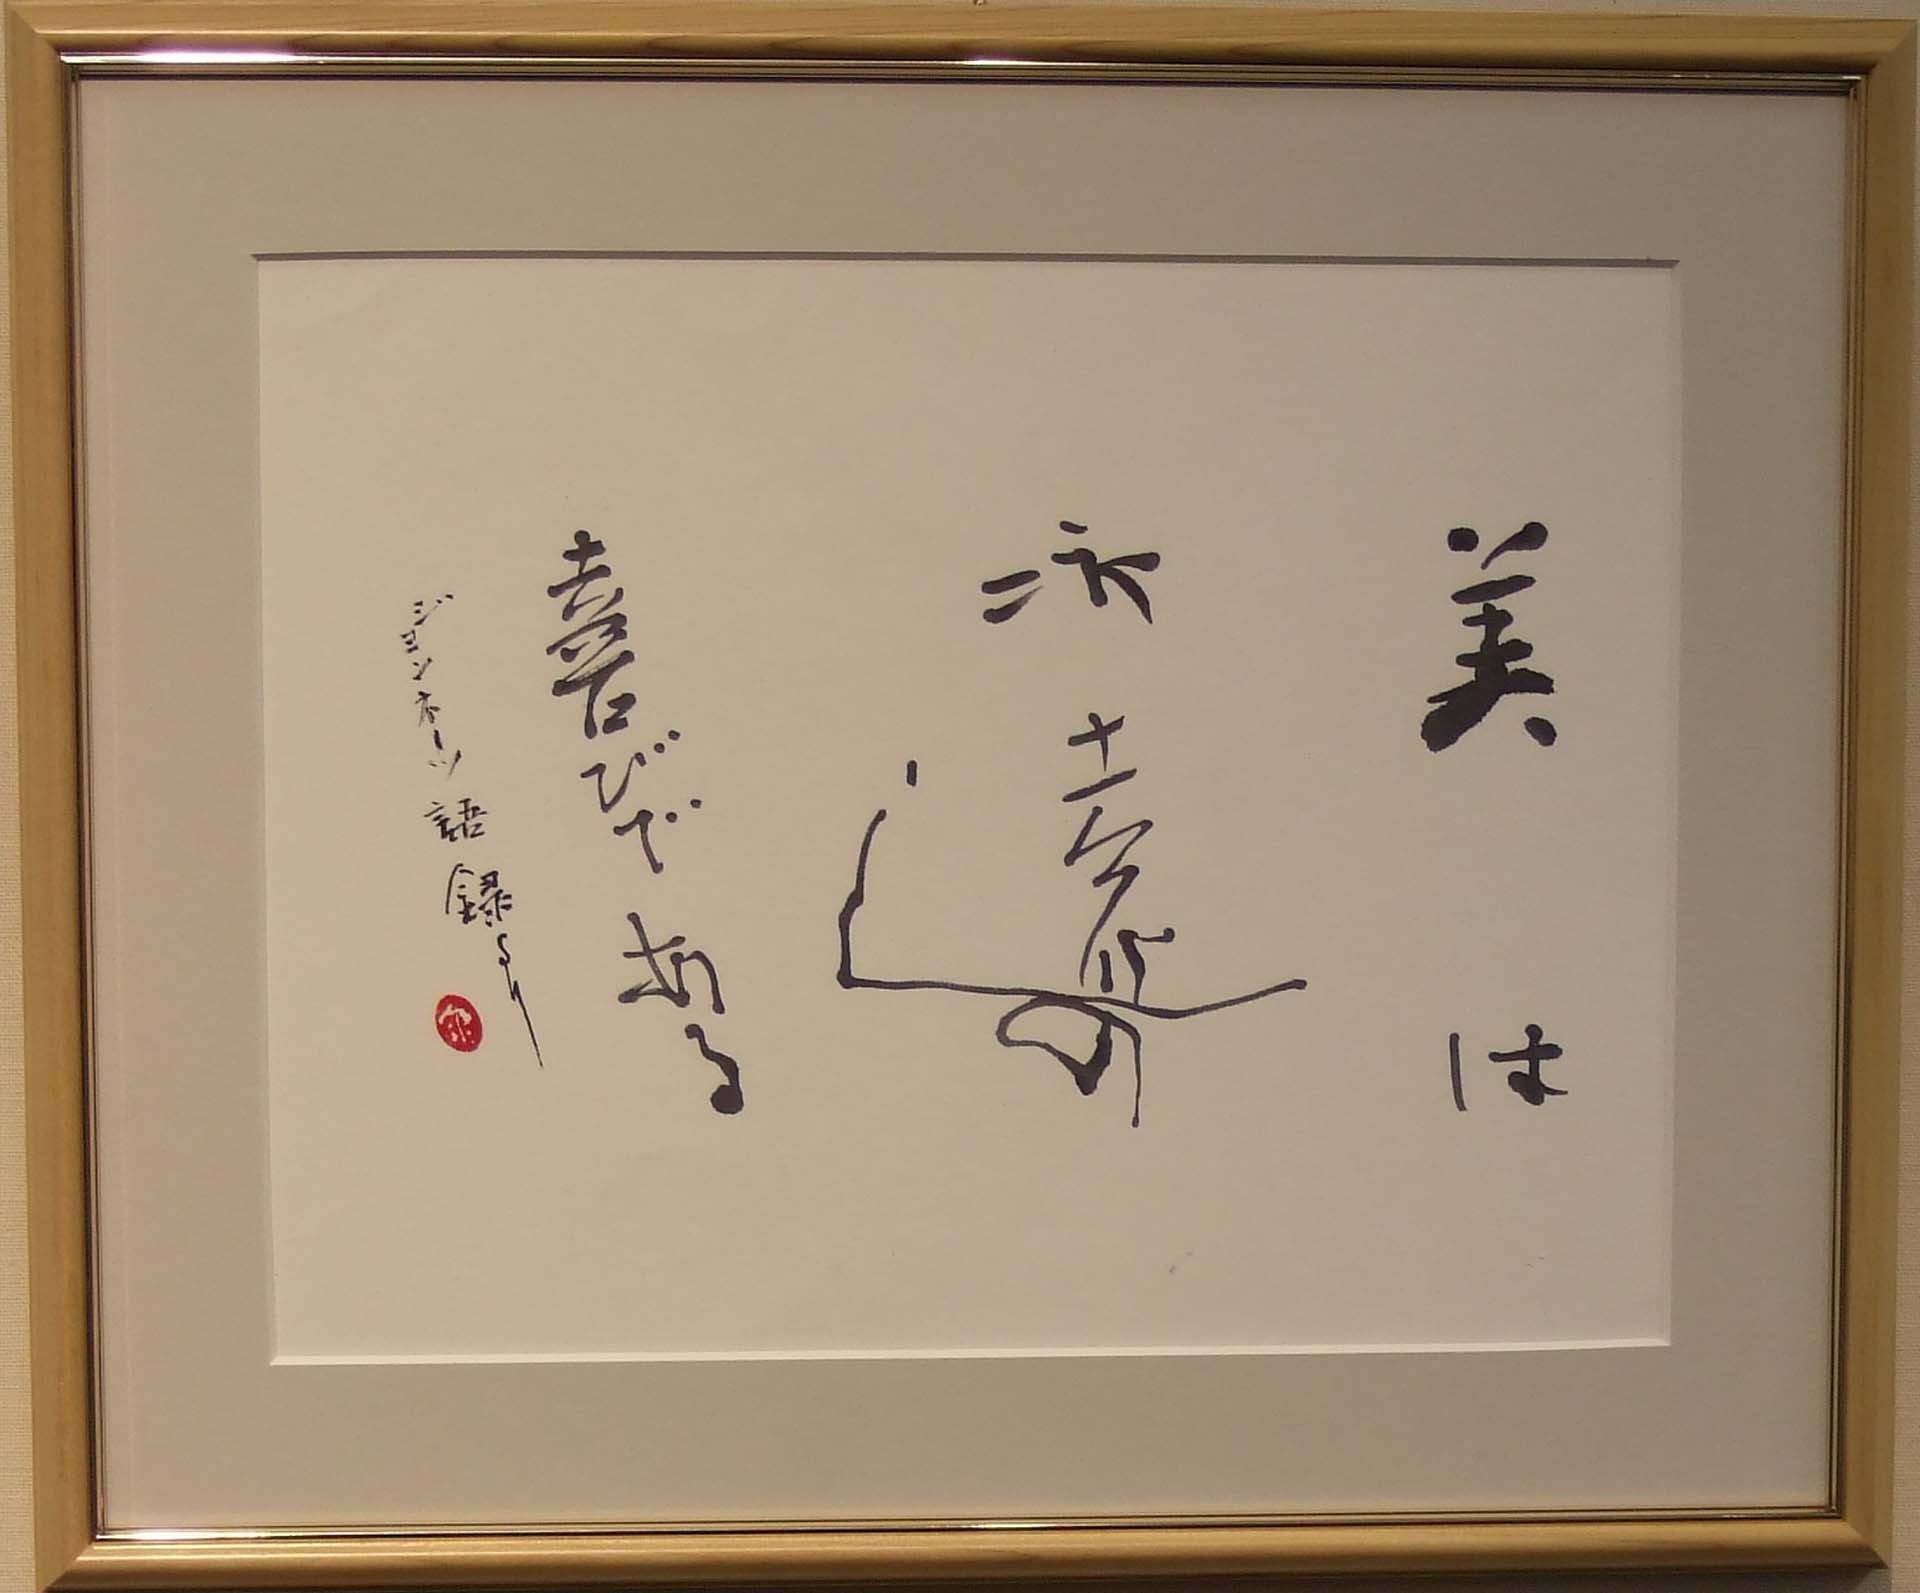 美は
永遠の
喜びである
ジョンキーツ語録より